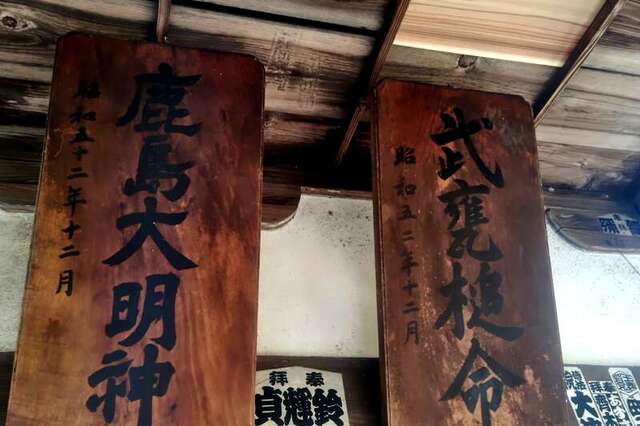 武甕槌命
昭和五二年十二月
鹿島大明神
昭和五十二年十二月
奉拝
鈴輝貞